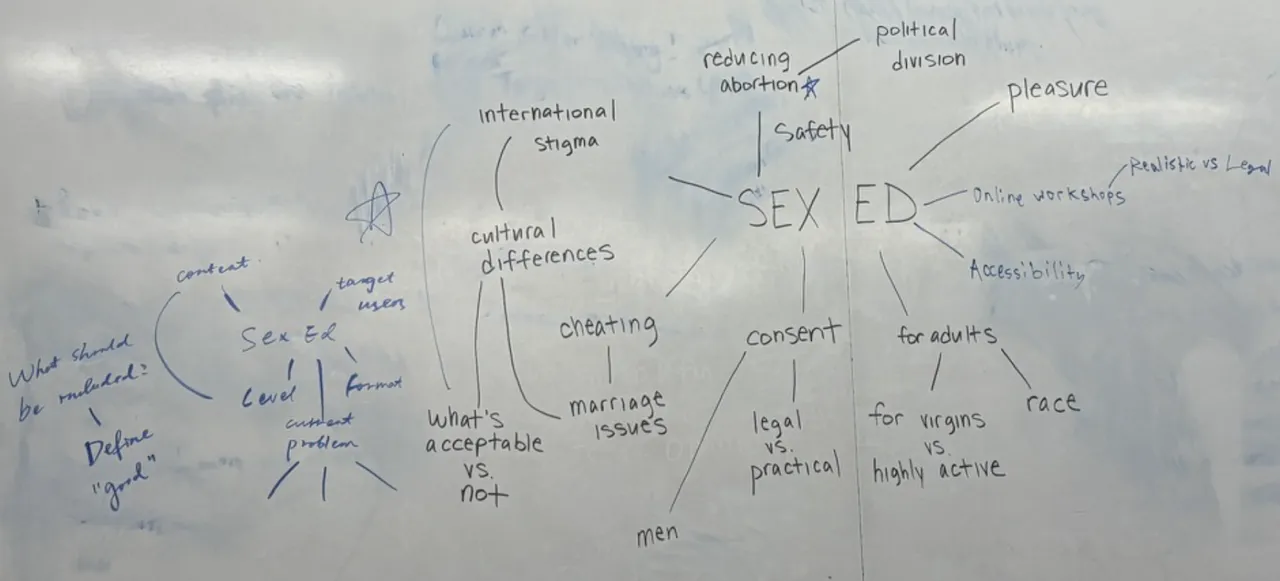 political
division
reducing
abortion
pleasure
international
stigma
Safety
Realistic vs Legal
SEX ED
Online workshops
cultural
differences
Accessibility
content
target
users
Sex Ed
What should
be included?
Level
format
current
problem
Define
"good"
cheating
consent
for adults
marriage
issues
race
what's
acceptable
vs.
not
legal
vs.
practical
for virgins
vs.
highly active
men